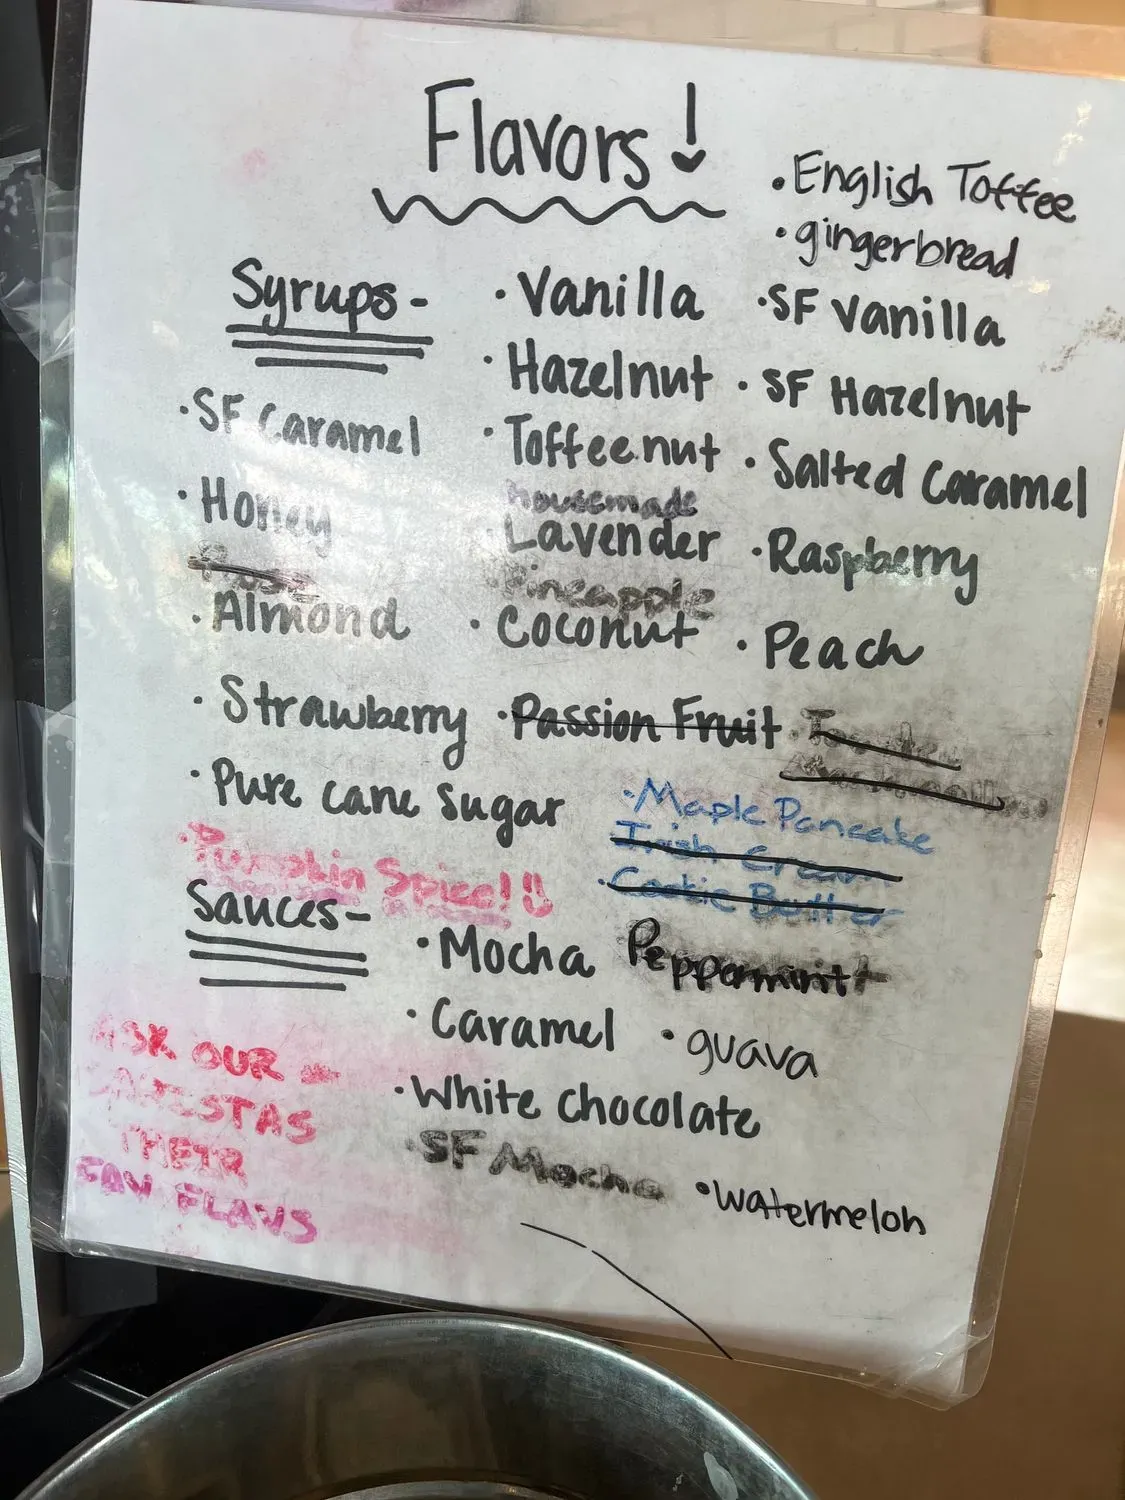 Flavors!
• English Toffee
• gingerbread
Syrups-
• Vanilla
• SF Vanilla
• Hazelnut
• SF Hazelnut
• SF Caramel
• Toffeenut
• Salted Caramel
• Honey
housemade
Lavender
• Raspberry
Rose
Pineapple
• Almond
• Coconut
• Peach
• Strawberry
• Passion Fruit
• Pure cane sugar
• Maple Pancake
Irish Cream
• Cookie Butter
• Pumpkin Spice!
Sauces-
• Mocha
Peppermint
• Caramel
• guava
• White chocolate
• SF Mocha
• watermelon
ASK OUR
BARISTAS
THEIR
FAV FLAVS